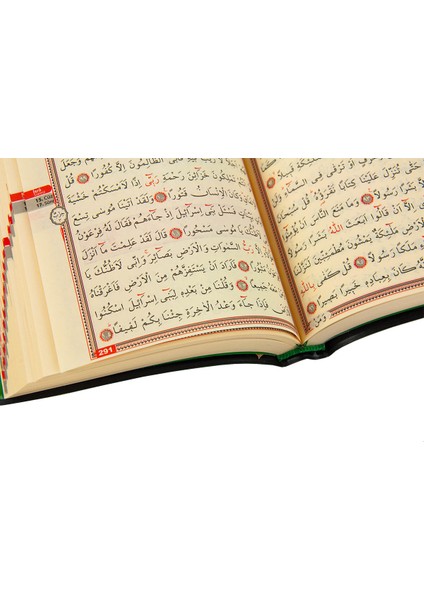 اَوْ تَرْقٰى فِى السَّمَٓاءِ
حَتّٰى تُنَزِّلَ عَلَيْنَا كِتَابًا نَقْرَؤُ۬هُ قُلْ
بَشَرًا رَسُولًا وَمَا مَنَعَ النَّاسَ اَنْ يُؤْمِنُٓوا
اِلَّٓا اَنْ قَالُٓوا اَبَعَثَ اللّٰهُ بَشَرًا رَسُولًا
الْاَرْضِ مَلٰٓئِكَةٌ يَمْشُونَ مُطْمَئِنّ۪ينَ لَنَزَّلْنَا
مَلَكًا رَسُولًا قُلْ كَفٰى بِاللّٰهِ
كَانَ بِعِبَادِه۪ خَب۪يرًا بَص۪يرًا
وَمَنْ
وَجَعَلَ
الظَّالِمُونَ اِلَّا كُفُورًا قُلْ
تَمْلِكُونَ خَزَٓائِنَ رَحْمَةِ رَبّ۪ٓى اِذًا لَاَمْسَكْتُمْ خَشْيَةَ
وَكَانَ الْاِنْسَانُ قَتُورًا وَلَقَدْ اٰتَيْنَا مُوسٰى تِسْعَ
فَسْـَٔلْ بَن۪ٓى اِسْرَٓائ۪لَ اِذْ جَٓاءَهُمْ فَقَالَ لَهُ فِرْعَوْنُ
يَا مُوسٰى مَسْحُورًا قَالَ لَقَدْ عَلِمْتَ مَٓا اَنْزَلَ
رَبُّ السَّمٰوَاتِ وَالْاَرْضِ بَصَٓائِرَ وَاِنّ۪ى لَاَظُنُّكَ يَا
مَثْبُورًا فَاَرَادَ اَنْ يَسْتَفِزَّهُمْ مِنَ الْاَرْضِ فَاَغْرَقْنَاهُ
جَم۪يعًا وَقُلْنَا مِنْ بَعْدِه۪ لِبَن۪ٓى اِسْرَٓائ۪لَ اسْكُنُوا
فَاِذَا جَٓاءَ وَعْدُ الْاٰخِرَةِ جِئْنَا بِكُمْ لَف۪يفًا
291